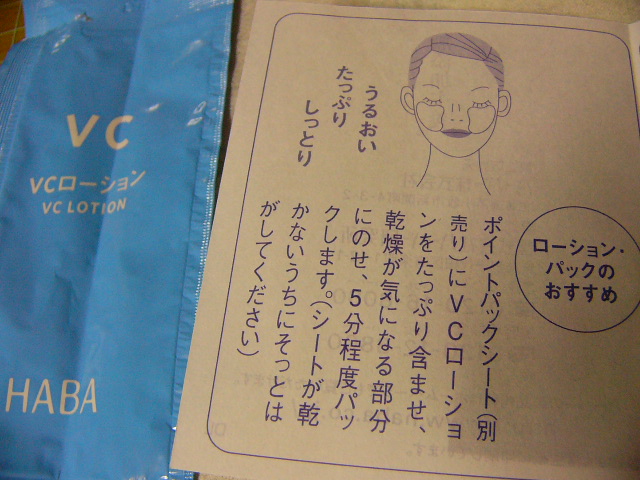 VC
VCローション
VC LOTION
HABA
うるおい
たっぷり
しっとり
ローション・
パックの
おすすめ
ポイントパックシート(別
売り)にVCローショ
ンをたっぷり含ませ
乾燥が気になる部分
にのせ、5分程度パッ
クします。(シートが乾
かないうちにそっとは
がしてください)